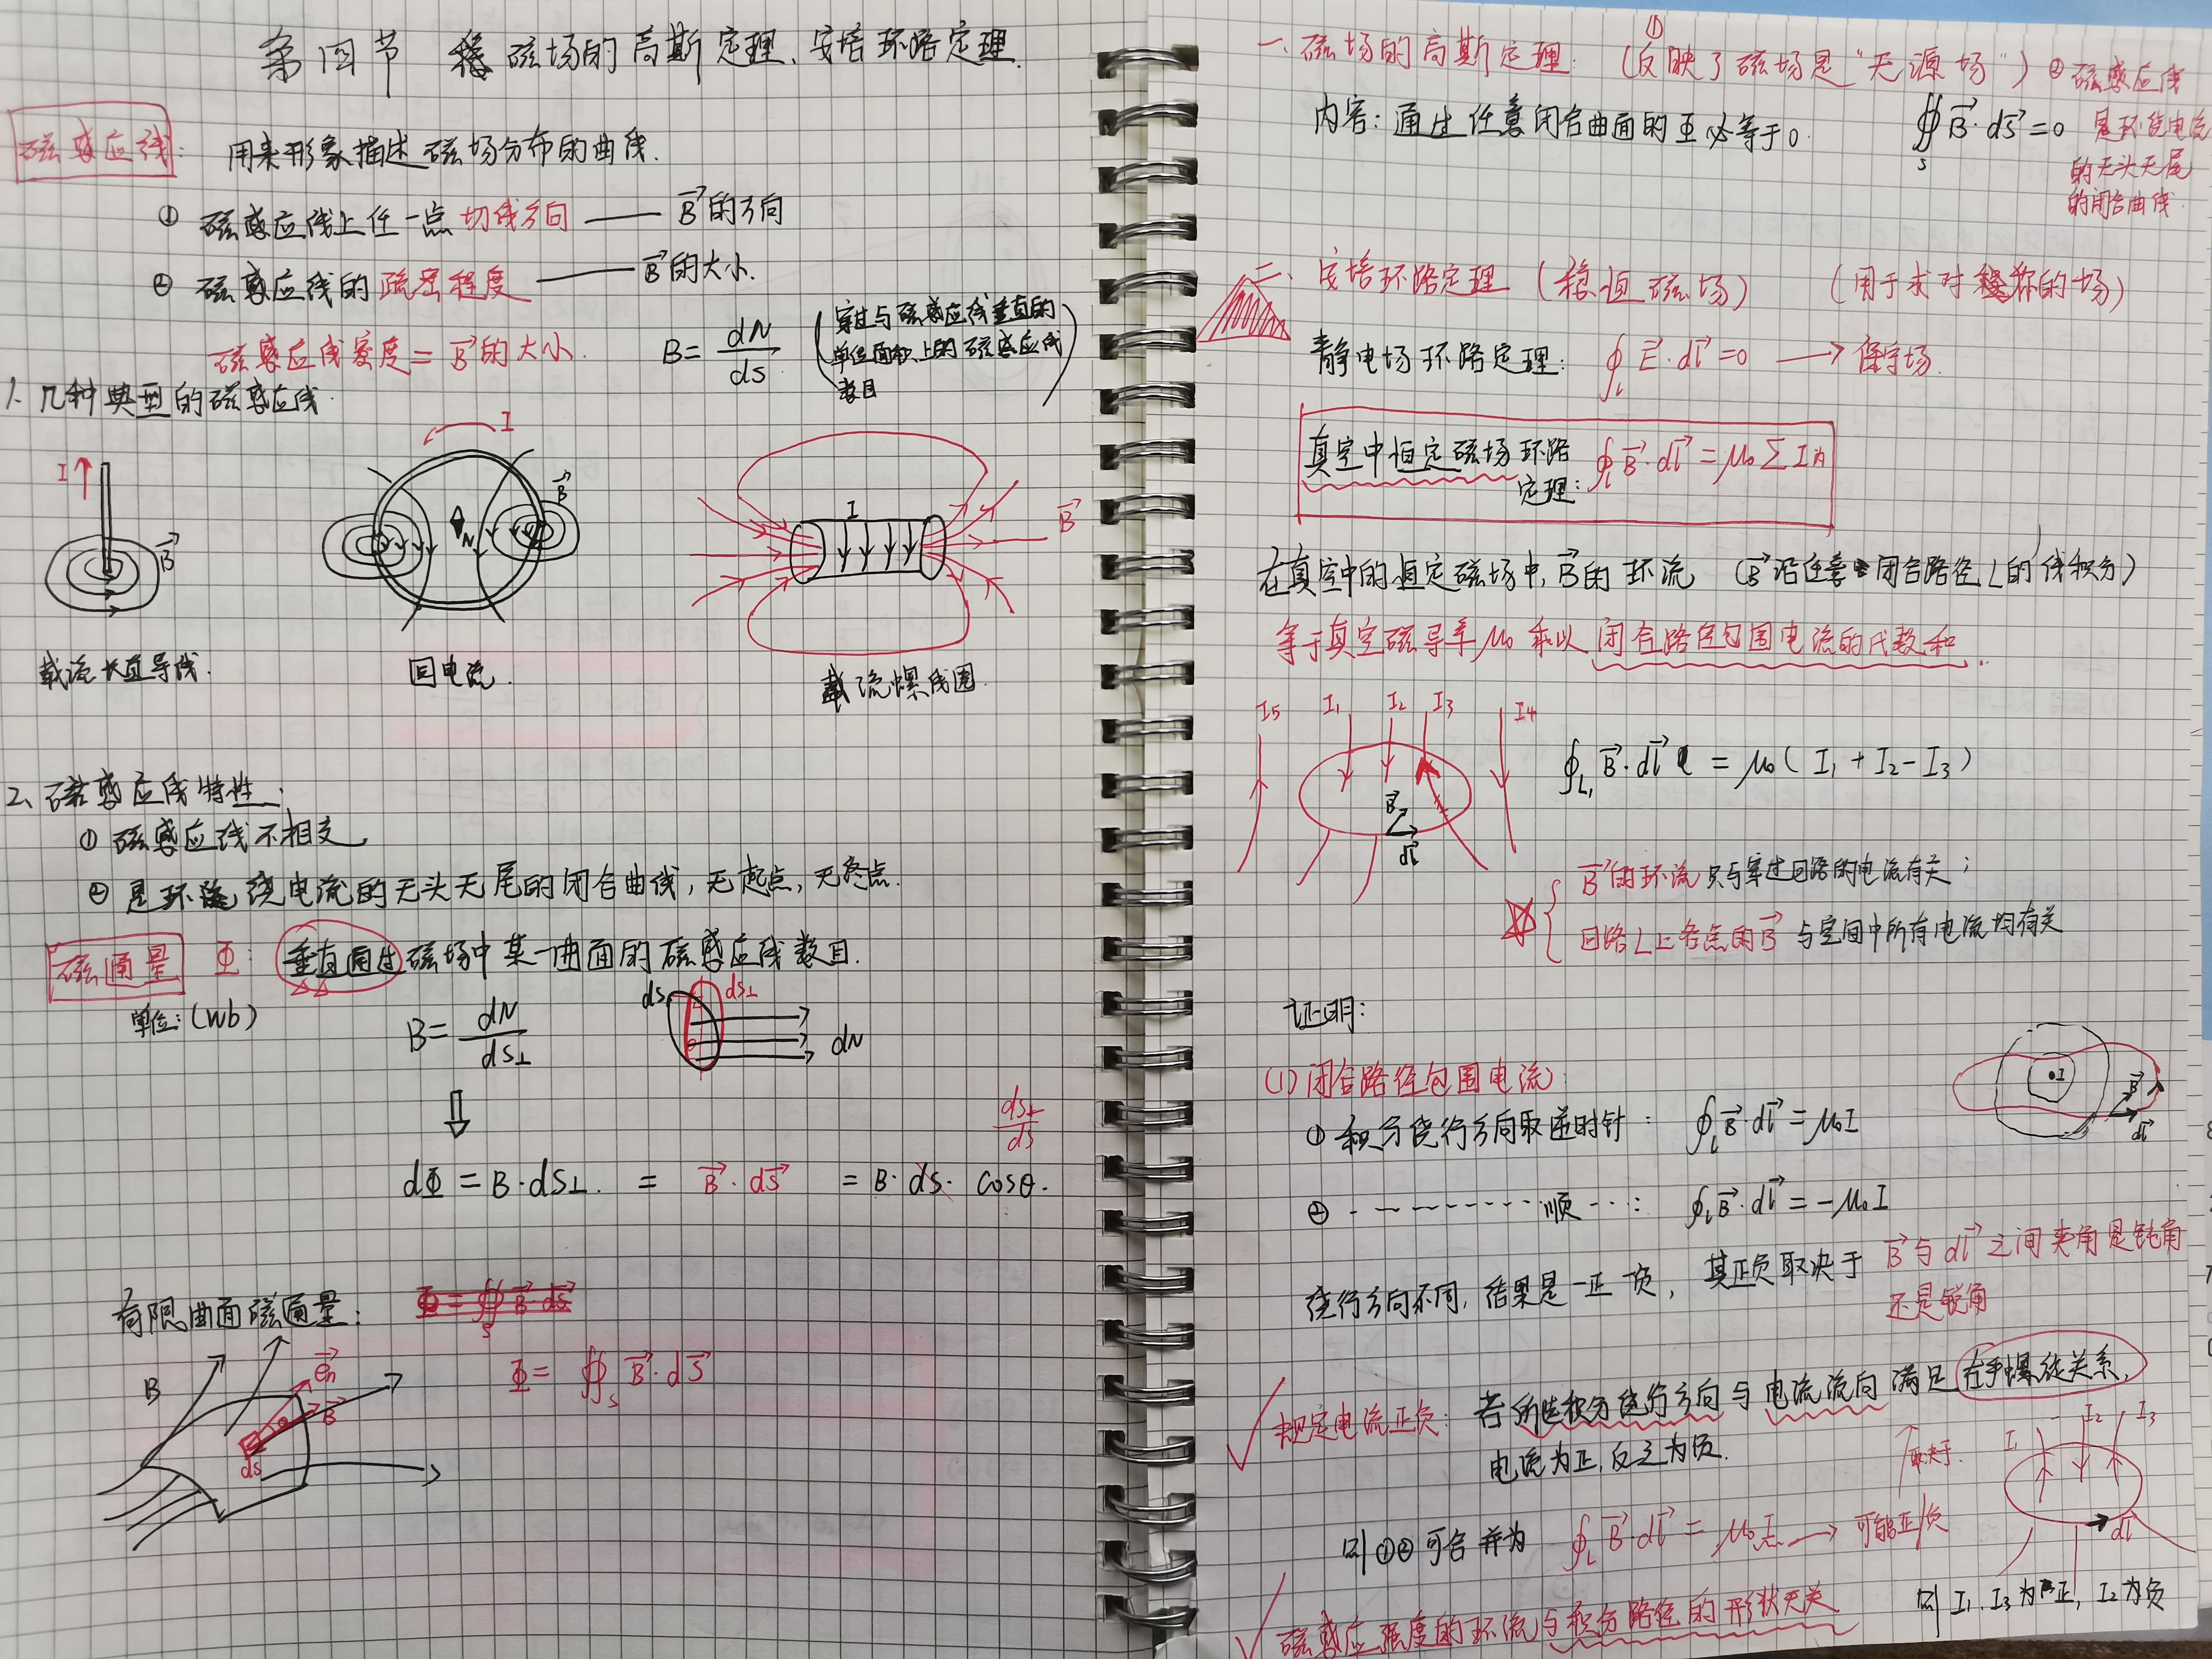 第四节 稳磁场的高斯定理、安培环路定理.
磁感应线: 用来形象描述磁场分布的曲线.
① 磁感应线上任一点切线方向 —— B⃗的方向
② 磁感应线的疏密程度 —— B⃗的大小.
磁感应线密度 = B⃗的大小. B = dN/ds (穿过与磁感应线垂直的单位面积上的磁感应线数目)
1. 几种典型的磁感应线
I B⃗
I B⃗ N
I B⃗
载流长直导线.
回电流.
载流螺线圈.
2、磁感应线特性:
① 磁感应线不相交
② 是环绕电流的无头无尾的闭合曲线, 无起点, 无终点.
磁通量 Φ: 垂直通过磁场中某一曲面的磁感应线数目.
单位: (wb)
B = dN/ds⊥
ds ds⊥ dN
⇓
ds⊥/ds
dΦ = B·ds⊥. = B⃗·ds⃗ = B·ds·cosθ.
有限曲面磁通量: Φ = ∯s B⃗·ds⃗
B e⃗n B⃗ ds
Φ = ∯s B⃗·ds⃗
一、磁场的高斯定理: (①反映了磁场是“无源场”) ② 磁感应线是环绕电流的无头无尾的闭合曲线.
内容: 通过任意闭合曲面的Φ必等于0. ∯s B⃗·ds⃗ = 0
二、安培环路定理 (稳恒磁场) (用于求对称的场)
静电场环路定理: ∮L E⃗·dl⃗ = 0 → 保守场.
真空中恒定磁场环路定理: ∮L B⃗·dl⃗ = μ₀ΣI内
在真空中的恒定磁场中, B⃗的环流 (B⃗沿任意闭合路径L的线积分)
等于真空磁导率μ₀乘以闭合路径包围电流的代数和.
I5 I1 I2 I3 I4
B⃗ dl⃗
∮L₁ B⃗·dl⃗ = μ₀( I₁ + I₂ - I₃ )
B⃗的环流只与穿过回路的电流有关;
回路L上各点的B⃗与空间中所有电流均有关
证明:
(1) 闭合路径包围电流:
I B⃗ dl⃗
① 积分绕行方向取逆时针: ∮L B⃗·dl⃗ = μ₀I
② -------- 顺 ---: ∮L B⃗·dl⃗ = -μ₀I
绕行方向不同, 结果是一正一负, 其正负取决于 B⃗与dl⃗之间夹角是钝角
还是锐角
规定电流正负: 若所选积分绕行方向与电流流向满足右手螺旋关系,
电流为正, 反之为负.
↑取决于.
I1 I2 I3
dl⃗
则①②可合并为 ∮L B⃗·dl⃗ = μ₀I → 可能正/负
则 I₁、I₃为正, I₂为负
磁感应强度的环流与积分路径的形状无关